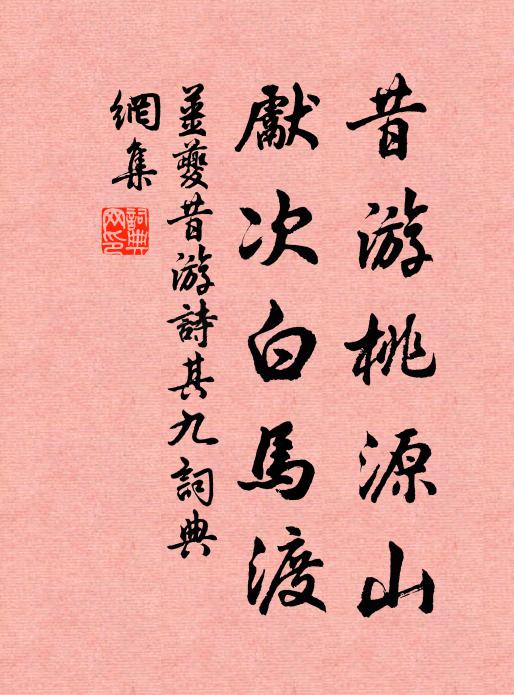 昔游桃源山
獻次白馬渡
薑夔昔游詩其九詞典
網集
詞典網印